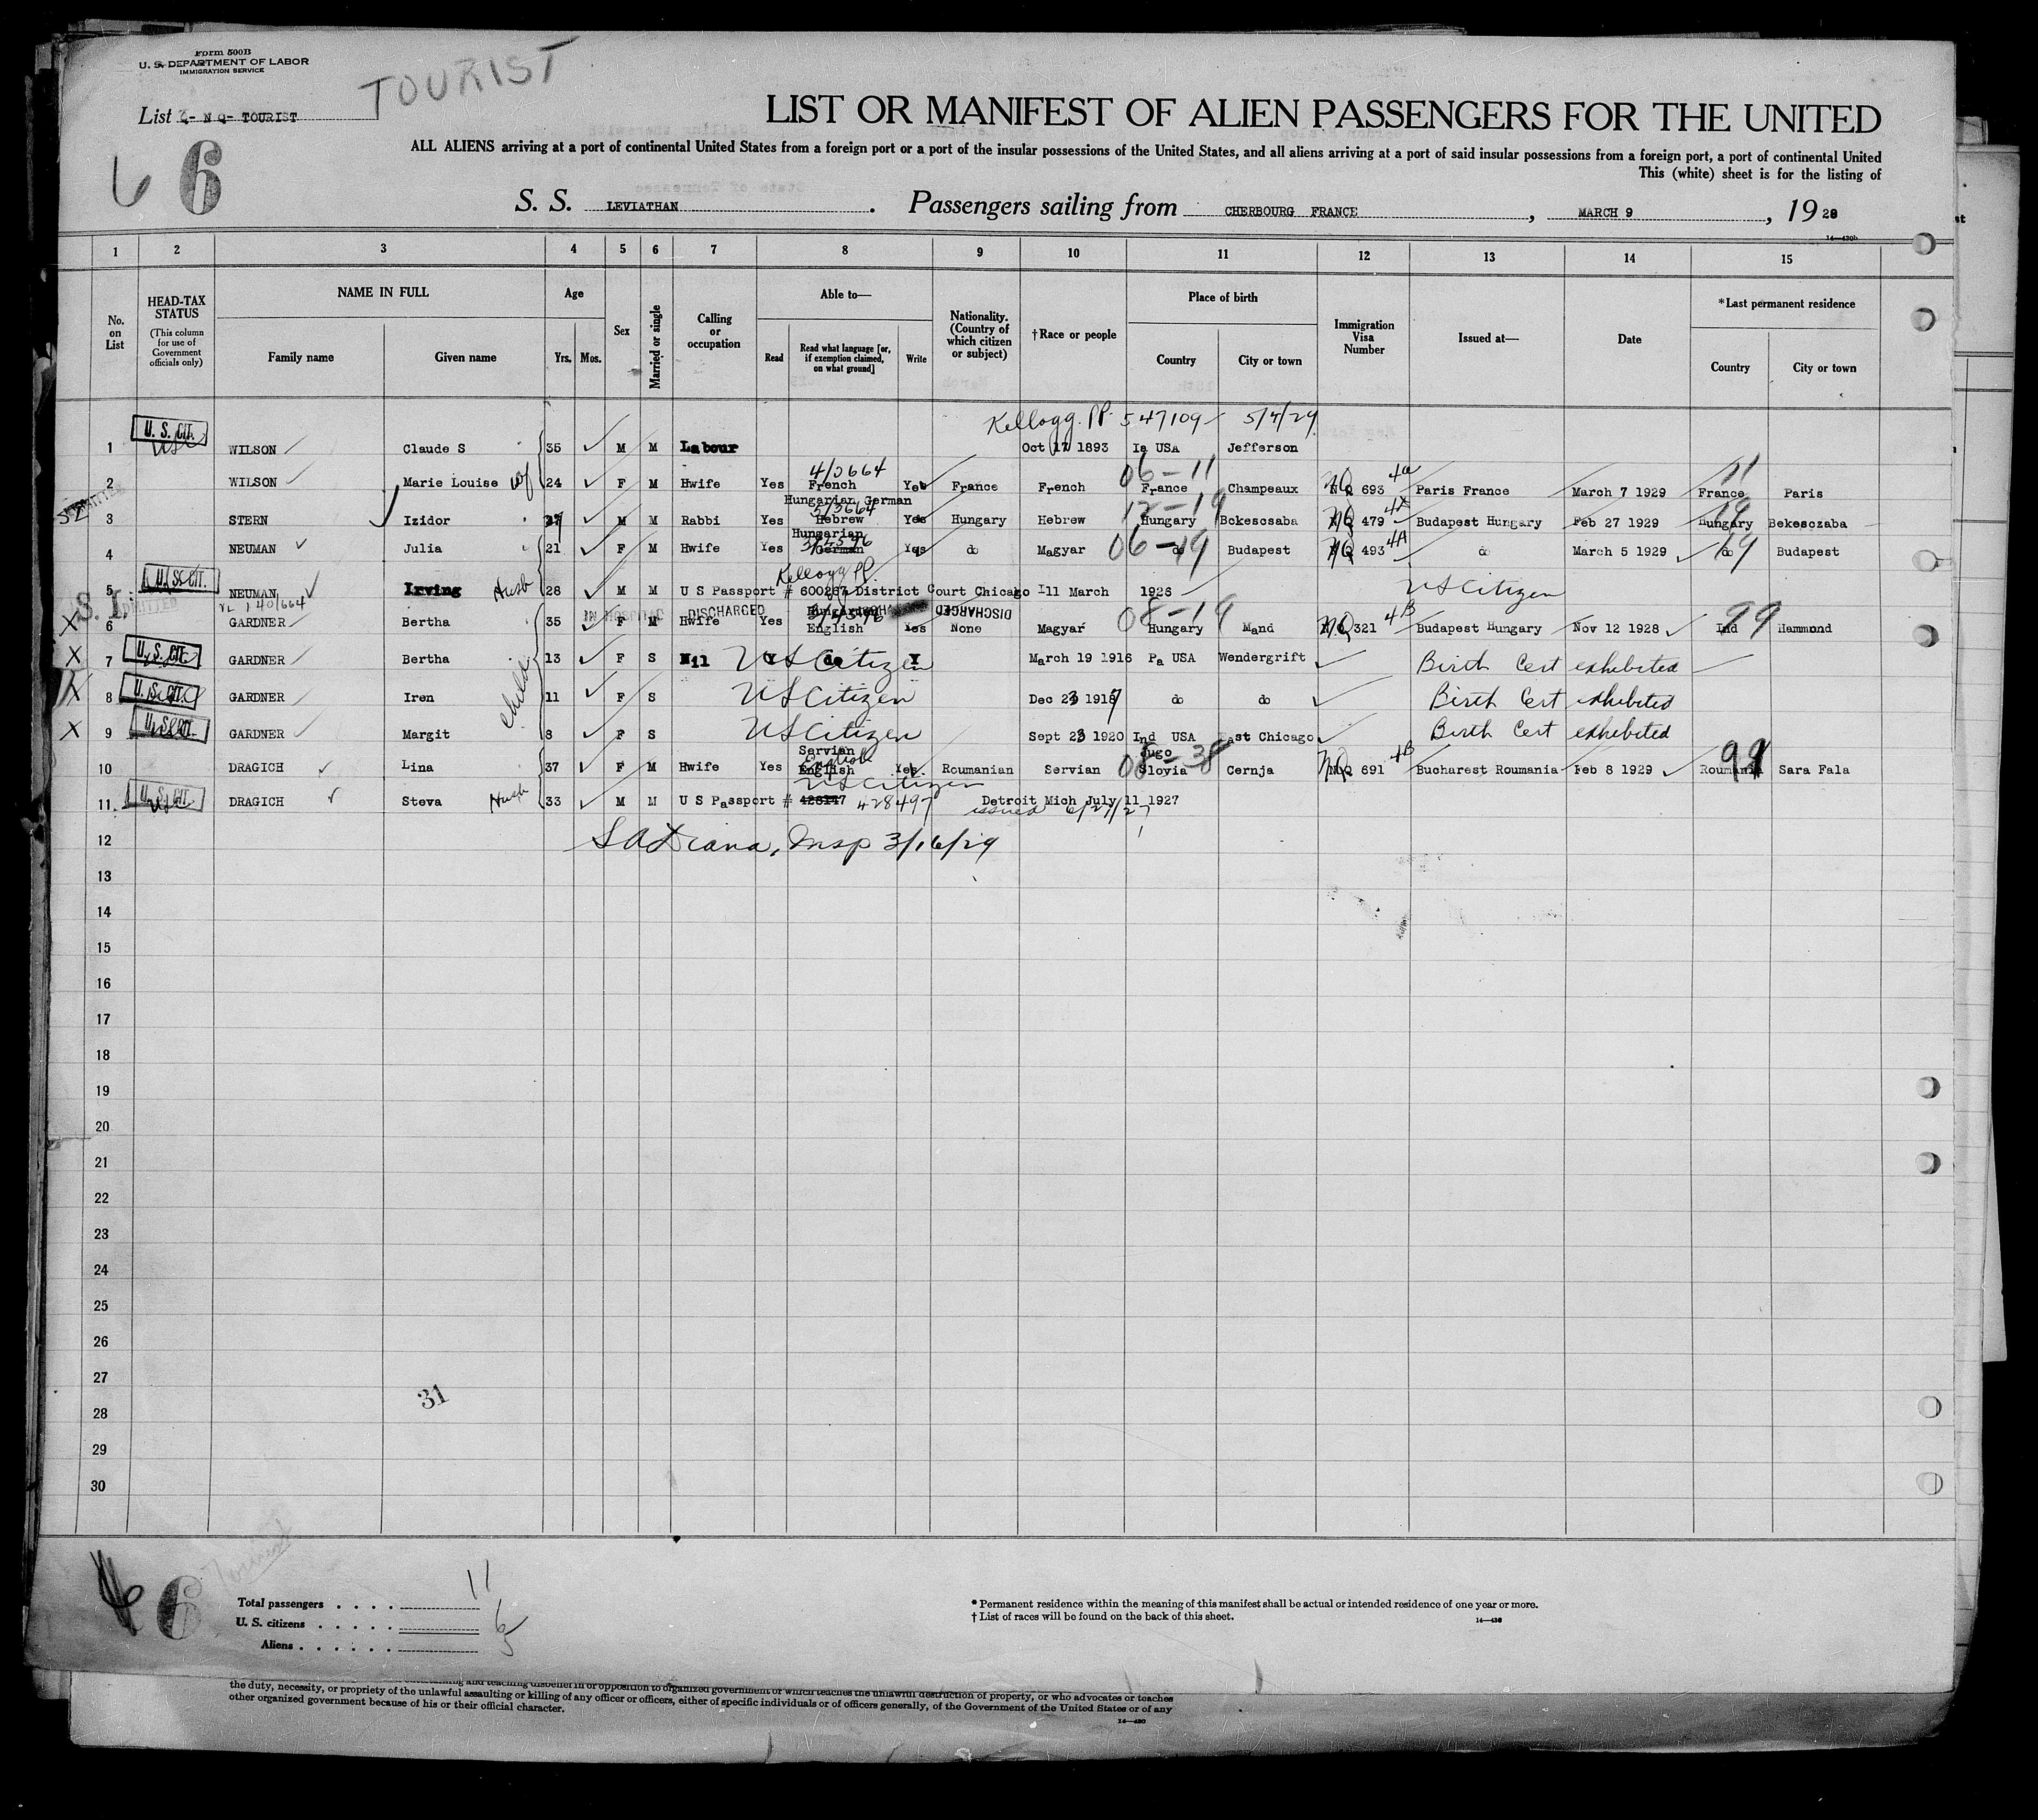 Form 500B
U. S. DEPARTMENT OF LABOR
IMMIGRATION SERVICE
TOURIST
List - N Q- TOURIST
LIST OR MANIFEST OF ALIEN PASSENGERS FOR THE UNITED
ALL ALIENS arriving at a port of continental United States from a foreign port or a port of the insular possessions of the United States, and all aliens arriving at a port of said insular possessions from a foreign port, a port of continental United
This (white) sheet is for the listing of
6 6
S. S. LEVIATHAN. Passengers sailing from CHERBOURG FRANCE, MARCH 9, 19 29
14—430b
1 2 3 4 5 6 7 8 9 10 11 12 13 14 15
No. on List
HEAD-TAX STATUS (This column for use of Government officials only)
NAME IN FULL Family name Given name
Age Yrs. Mos.
Sex
Married or single
Calling or occupation
Able to— Read Read what language [or, if exemption claimed, on what ground] Write
Nationality. (Country of which citizen or subject)
†Race or people
Place of birth Country City or town
Immigration Visa Number
Issued at—
Date
*Last permanent residence Country City or town
Kellogg. PP. 547109 5/7/29
1 U. S. CIT. WILSON Claude S 35 M M Labour Oct 17 1893 Ia USA Jefferson
4/3664 06-11 4a 11
2 WILSON Marie Louise wf 24 F M Hwife Yes French Yes France French France Champeaux NQ 693 Paris France March 7 1929 France Paris
Hungarian German
5/3664 12-19 19
3 STERN Izidor M M Rabbi Yes Hebrew Yes Hungary Hebrew Hungary Bekescsaba NQ 479 Budapest Hungary Feb 27 1929 Hungary Bekesczaba
Hungarian
06-19 4A 19
4 NEUMAN Julia 21 F M Hwife Yes German Yes do Magyar do Budapest NQ 493 do March 5 1929 do Budapest
Kellogg PP.
5 U. S. CIT. NEUMAN Irving Husb 28 M M U S Passport # 600267 District Court Chicago Ill March 1926 US Citizen
S. I. ADMITTED
DISCHARGED Hungarian DISCHARGED
08-19 4B 99
6 GARDNER Bertha 35 F M Hwife Yes English Yes None Magyar Hungary Mand NQ 321 Budapest Hungary Nov 12 1928 Ind Hammond
X 7 U. S. CIT. GARDNER Bertha 13 F S Nil Y do Y US Citizen March 19 1916 Pa USA Wendergrift Birth Cert exhibited
X 8 U. S. CIT. GARDNER Iren child 11 F S US Citizen Dec 23 1917 do do Birth Cert exhibited
X 9 GARDNER Margit 8 F S US Citizen Sept 23 1920 Ind USA East Chicago Birth Cert exhibited
Servian Jugo
English 08-38 4B 99
10 DRAGICH Lina 37 F M Hwife Yes English Yes Roumanian Servian Slovia Cernja NQ 691 Bucharest Roumania Feb 8 1929 Roumania Sara Fala
US Citizen
11 U. S. CIT. DRAGICH Steva Husb 33 M M U S Passport # 428497 Detroit Mich July 11 1927
issued 6/27/27
12 Insp 3/16/29
13
14
15
16
17
18
19
20
21
22
23
24
25
26
27
31
28
29
30
6 Tourist
Total passengers 11
U. S. citizens 6
Aliens 5
* Permanent residence within the meaning of this manifest shall be actual or intended residence of one year or more.
† List of races will be found on the back of this sheet.
14—430
the duty, necessity, or propriety of the unlawful assaulting or killing of any officer or officers, either of specific individuals or of officers generally, of the Government of the United States or of any
other organized government because of his or their official character.
14—430